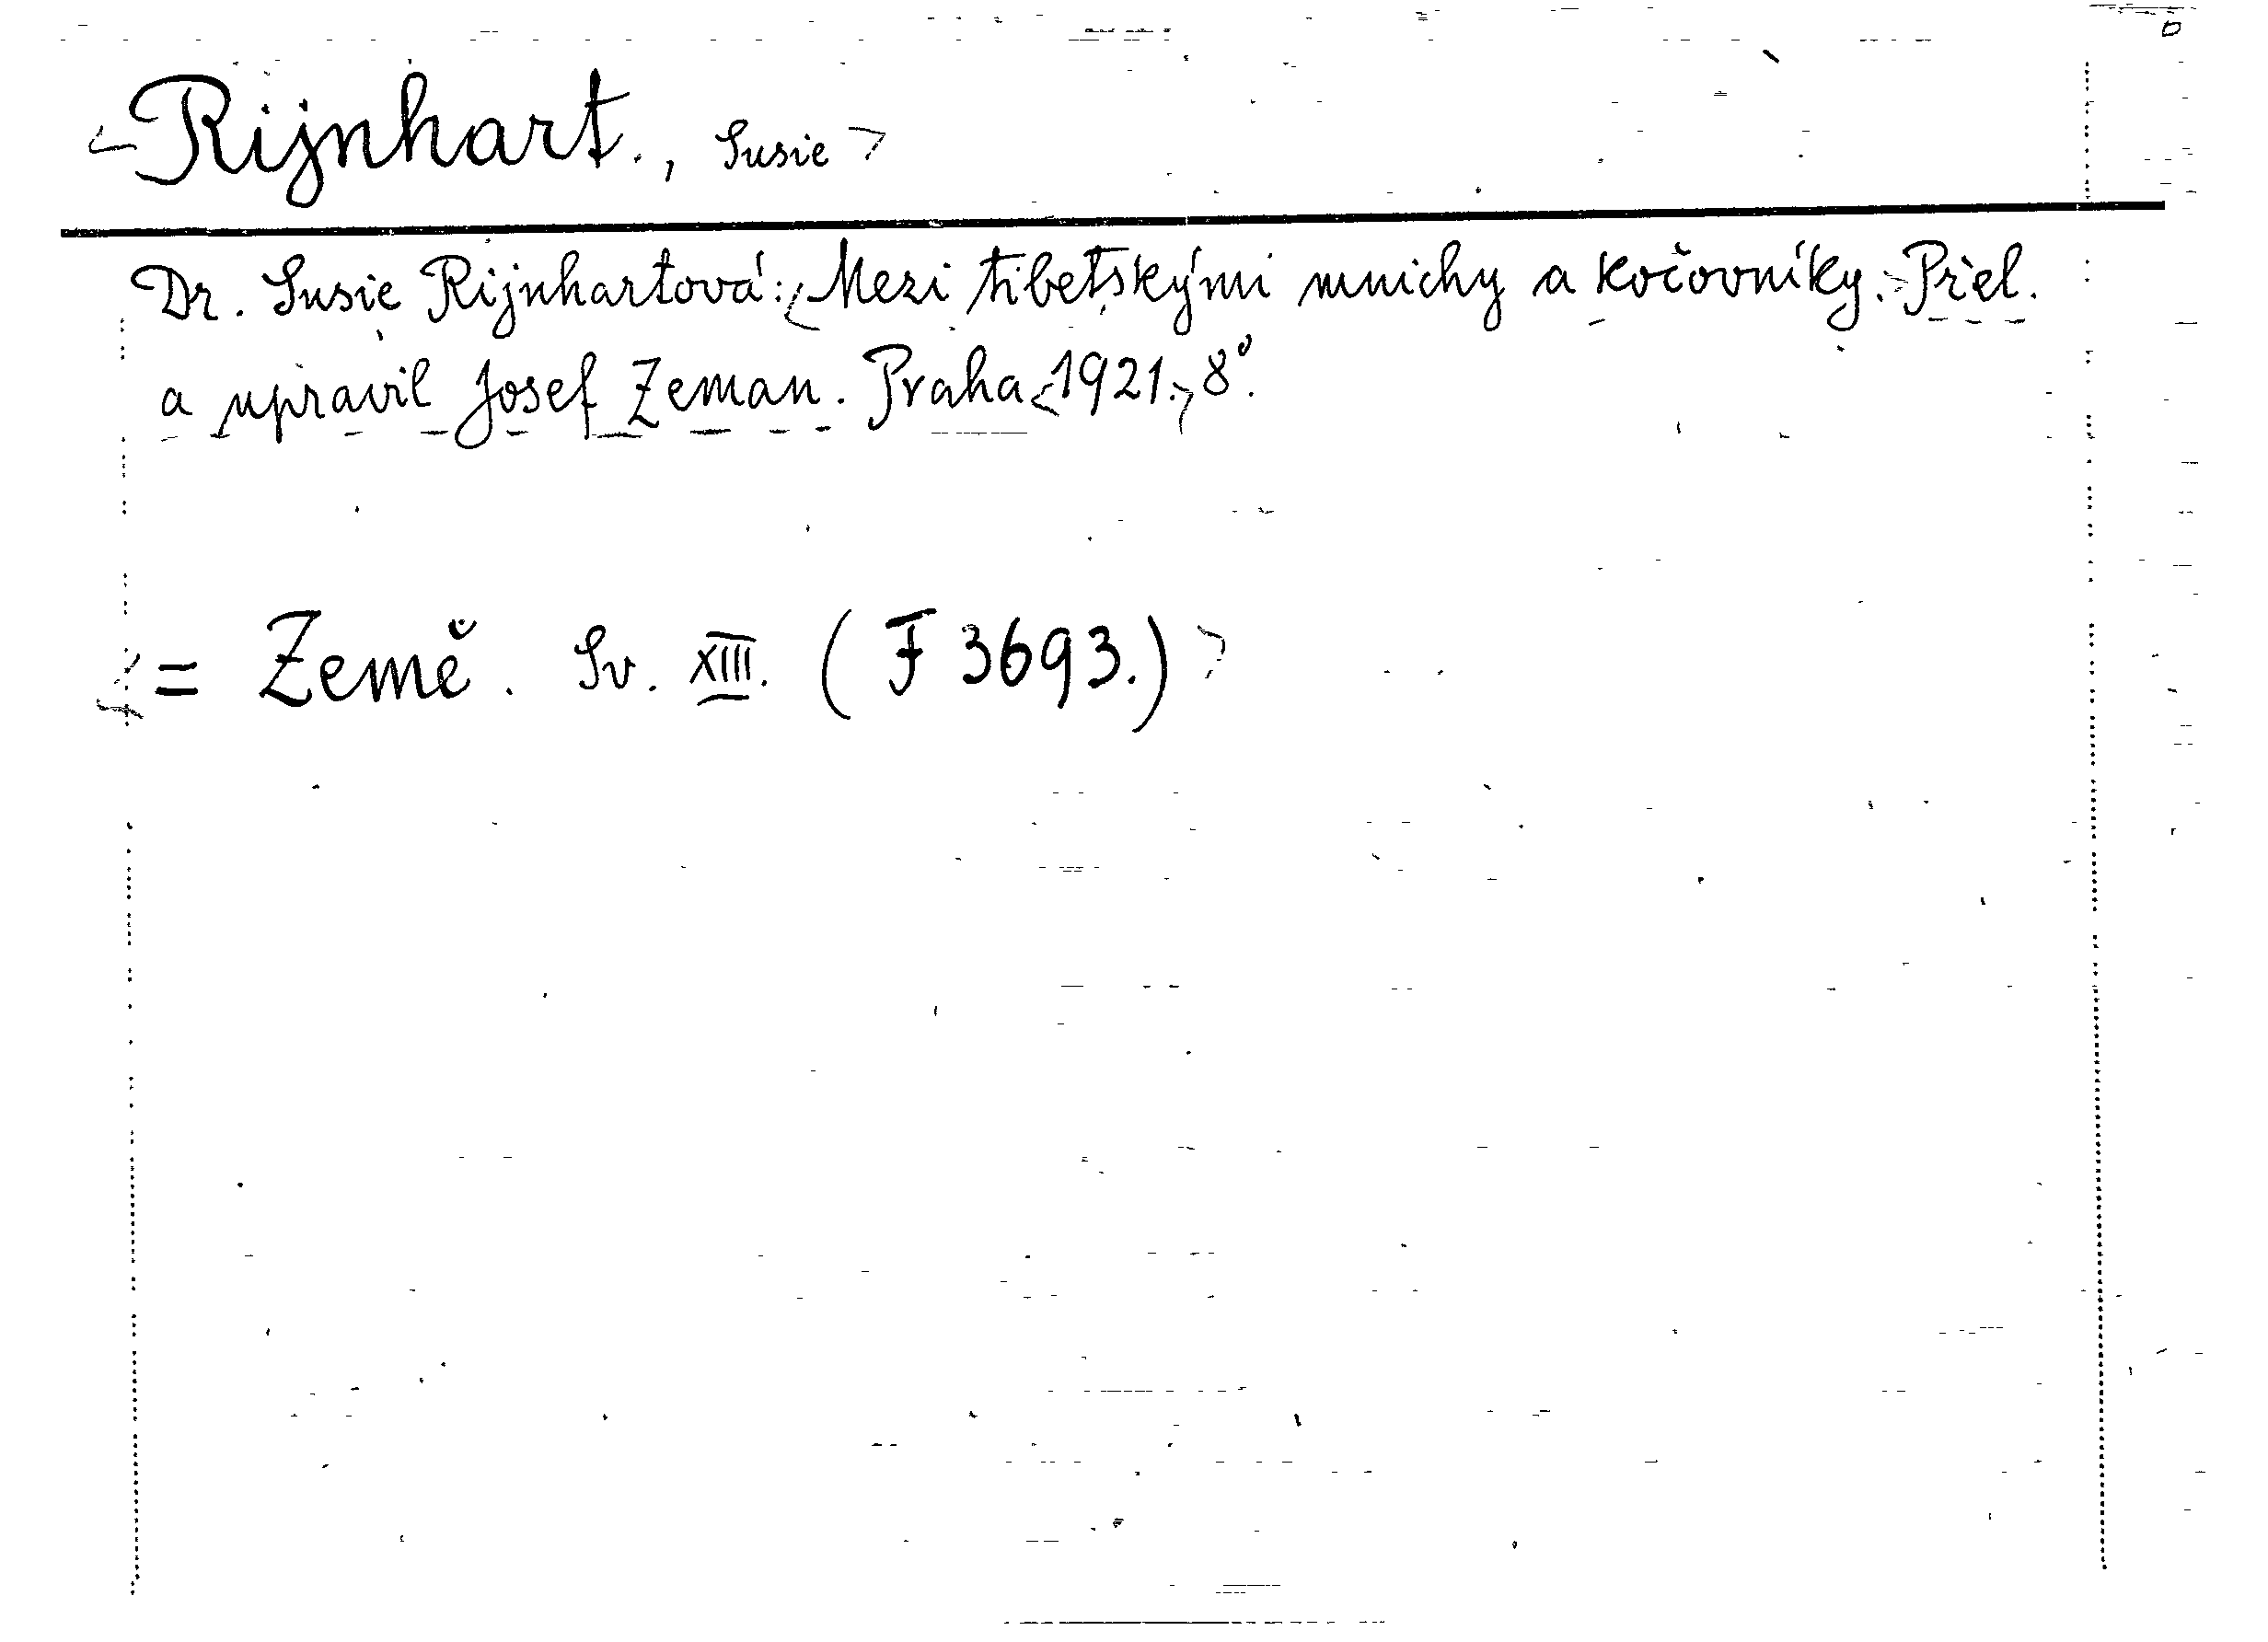 <Rijnhart., Susie>
Dr. Susie Rijnhartová: <Mezi tibetskými mnichy a kočovníky.> Přel.
a upravil Josef Zeman. Praha <1921.> 8°.
<= Země. Sv. XIII. (F 3693.)>